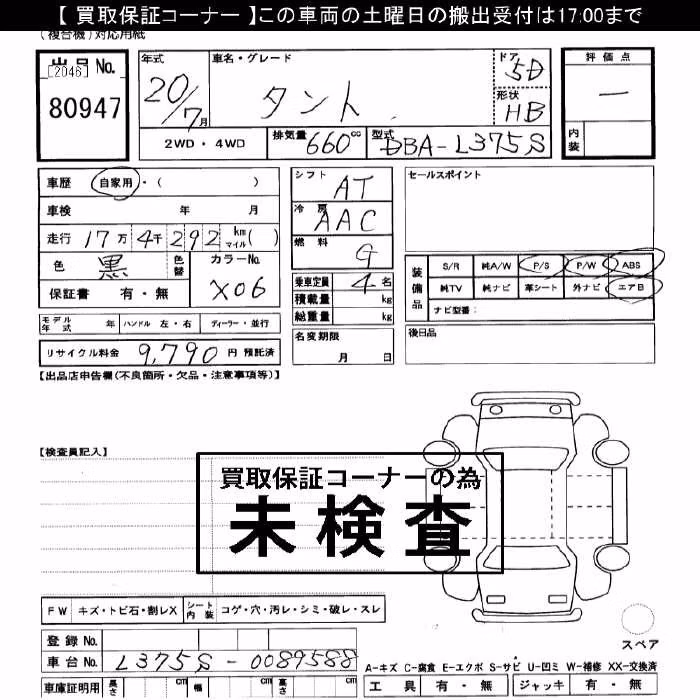 【 買取保証コーナー 】この車両の土曜日の搬出受付は17:00まで
(複合機)対応用紙
出品No.
[2046]
80947
年式
20/7月
車名・グレード
タント
ドア
5D
形状
HB
評価点
―
内装
2WD・4WD
排気量
660cc
型式
DBA-L375S
車歴
自家用・( )
車検 年 月
走行 17万4千292km マイル( )
色 黒 色替
カラーNo.
X06
保証書 有・無
シフト
AT
冷房
AAC
燃料
G
乗車定員 4名
積載量 kg
総重量 kg
セールスポイント
装備品
S/R 純A/W P/S P/W ABS
純TV 純ナビ 革シート 外ナビ エアB
ナビ型番:
モデル年式 年 ハンドル 左・右 ディーラー・並行
名変期限
月 日
後日品
リサイクル料金 9,790円 預託済
【出品店申告欄(不良箇所・欠品・注意事項等)】
【検査員記入】
買取保証コーナーの為
未検査
FW キズ・トビ石・割レX シート内装 コゲ・穴・汚レ・シミ・破レ・スレ
スペア
登録No.
車台No. L375S-0089588
車庫証明用 長さ cm 幅 cm 高さ cm
A-キズ C-腐食 E-エクボ S-サビ U-凹ミ W-補修 XX-交換済
工具 有・無 ジャッキ 有・無